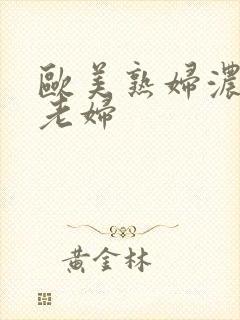 歐美熟婦濃
老婦
黃金林